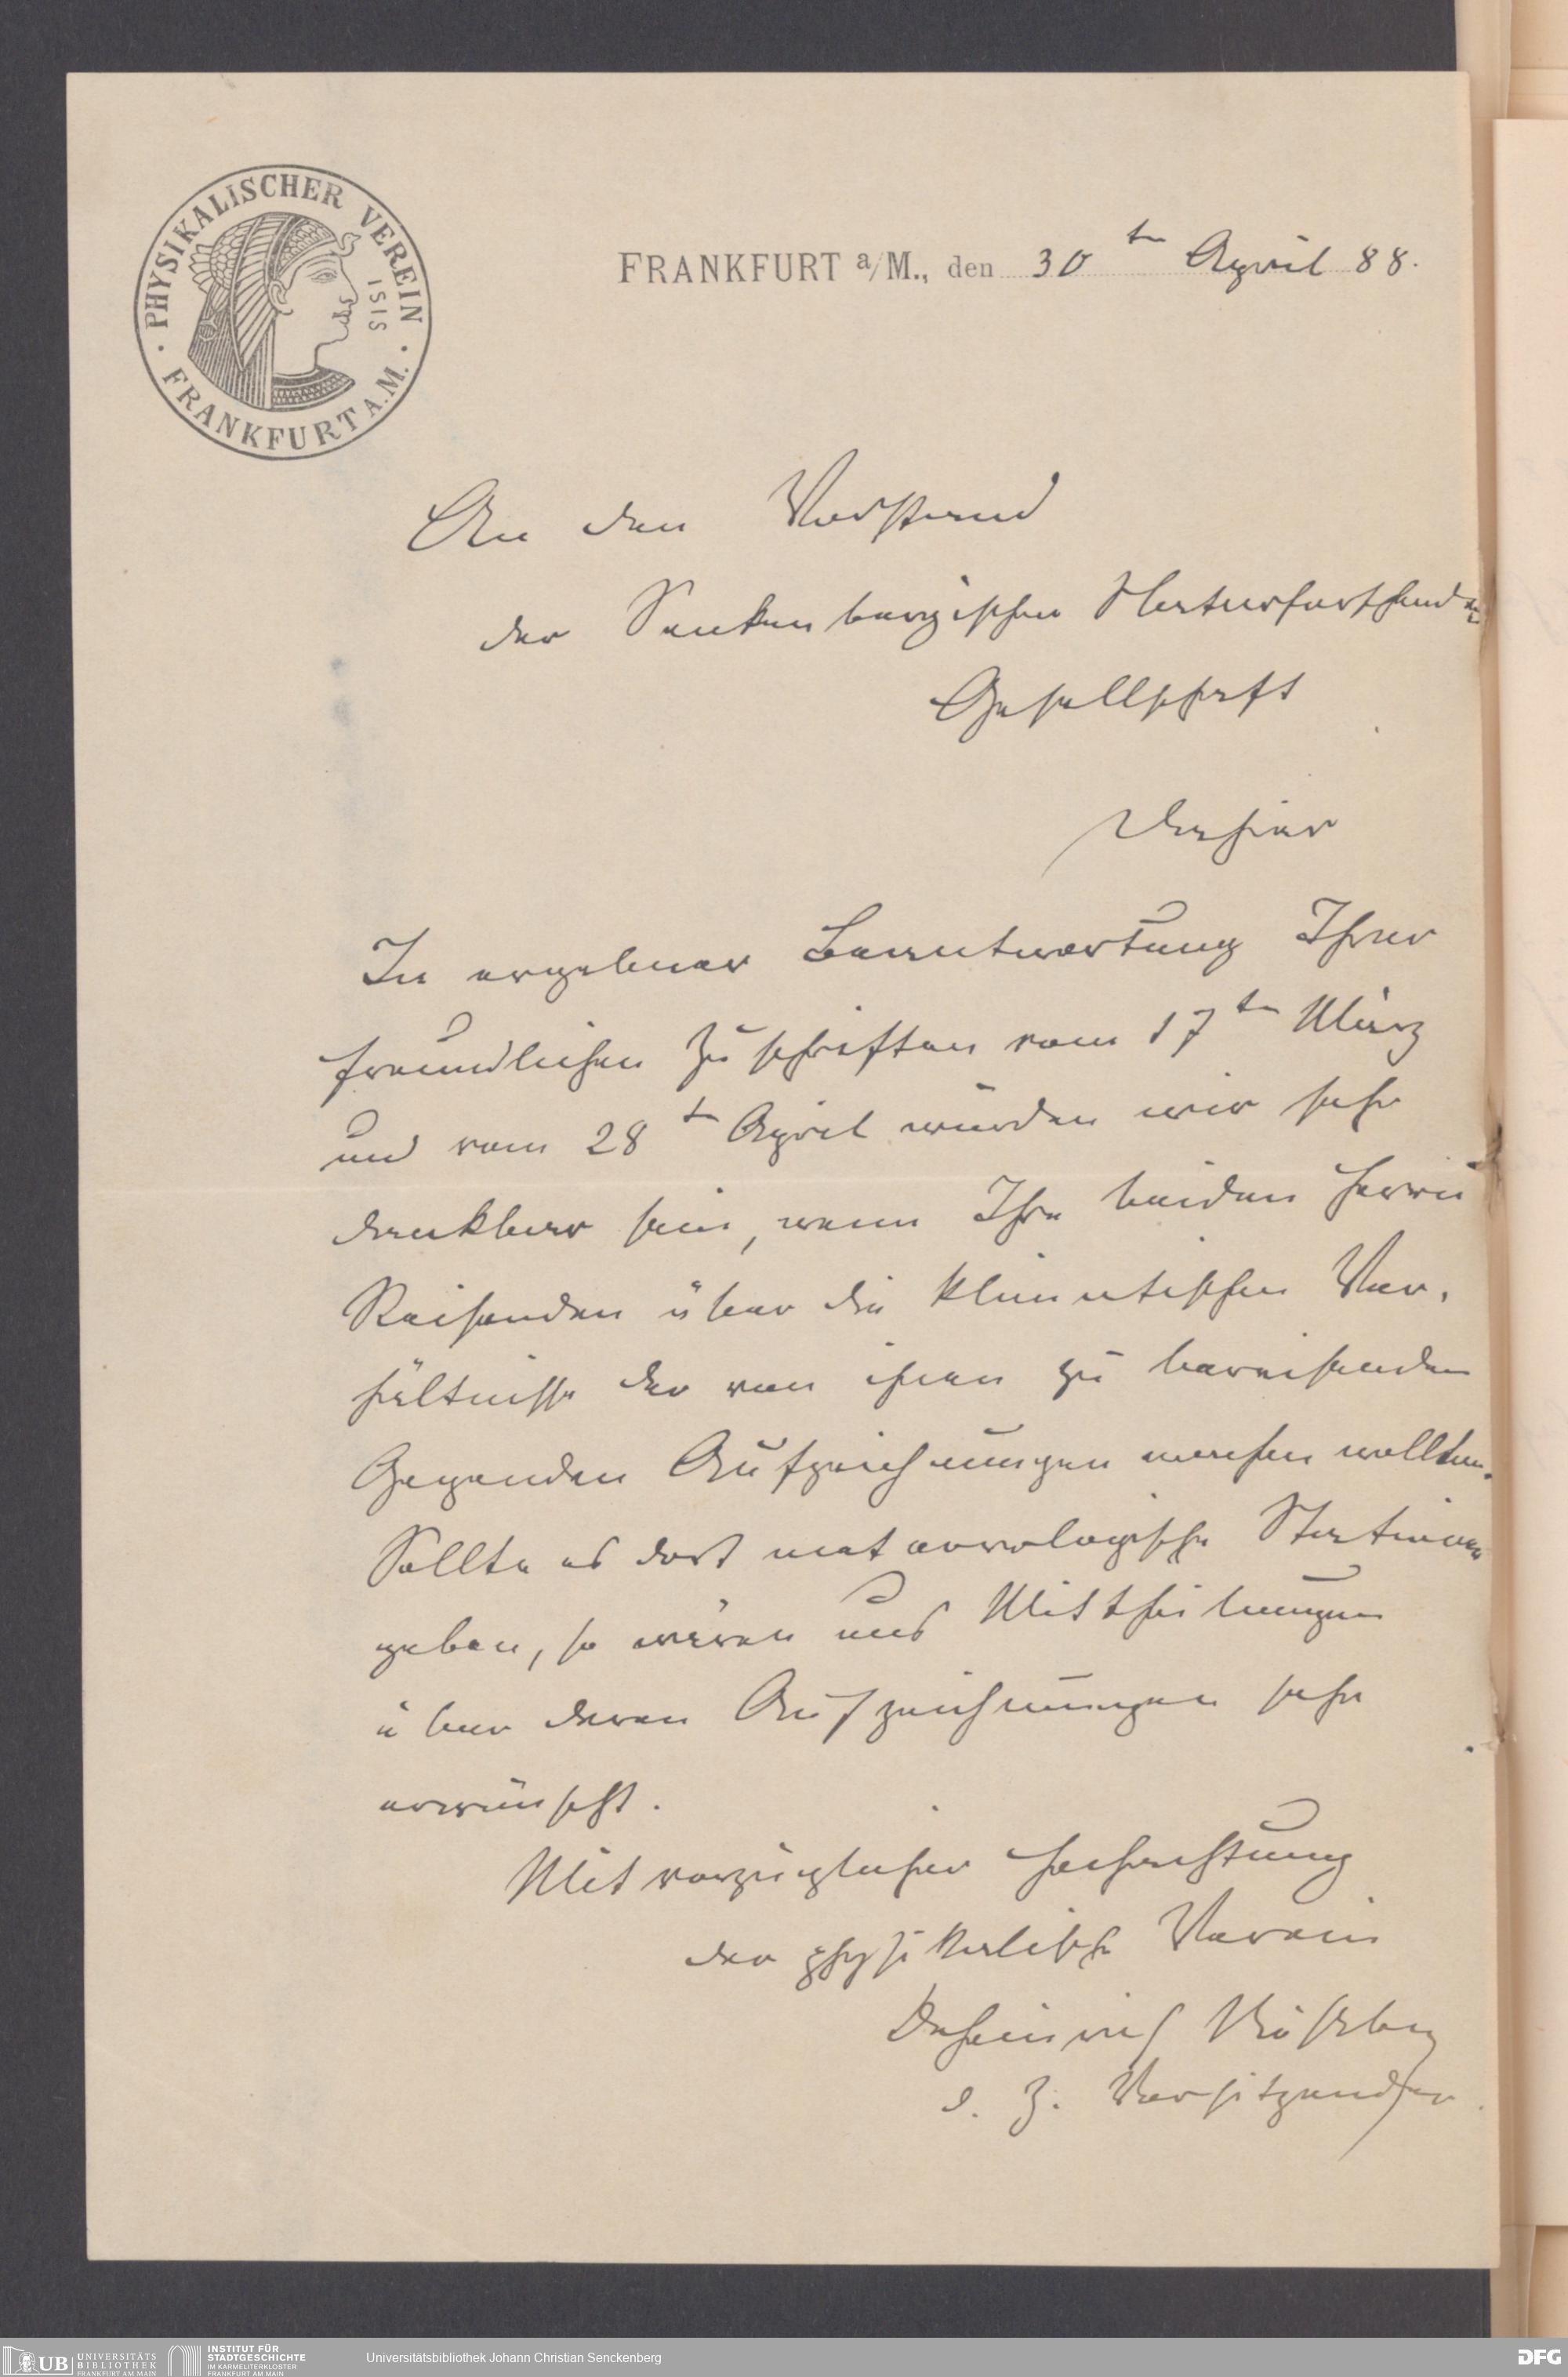 PHYSIKALISCHER VEREIN
ISIS
FRANKFURT A. M.
FRANKFURT a/M., den 30ten April 88.
An den Vorstand
der Senkenbergischen Naturforschenden
Gesellschaft
Dahier
In ergebener Beantwortung Ihrer
freundlichen Zuschriften vom 17ten März
und vom 28ten April würden wir sehr
dankbar sein, wenn Ihre beiden Herrn
Reisenden über die klimatischen Ver-
hältnisse der von ihnen zu bereisenden
Gegenden Aufzeichnungen machen wollten.
Sollte es dort meteorologische Stationen
geben, so wären uns Mittheilungen
über deren Aufzeichnungen sehr
erwünscht.
Mit vorzüglicher Hochachtung
der physikalische Verein
d. Z. Vorsitzender
UB UNIVERSITÄTS BIBLIOTHEK FRANKFURT AM MAIN
INSTITUT FÜR STADTGESCHICHTE IM KARMELITERKLOSTER FRANKFURT AM MAIN
Universitätsbibliothek Johann Christian Senckenberg
DFG